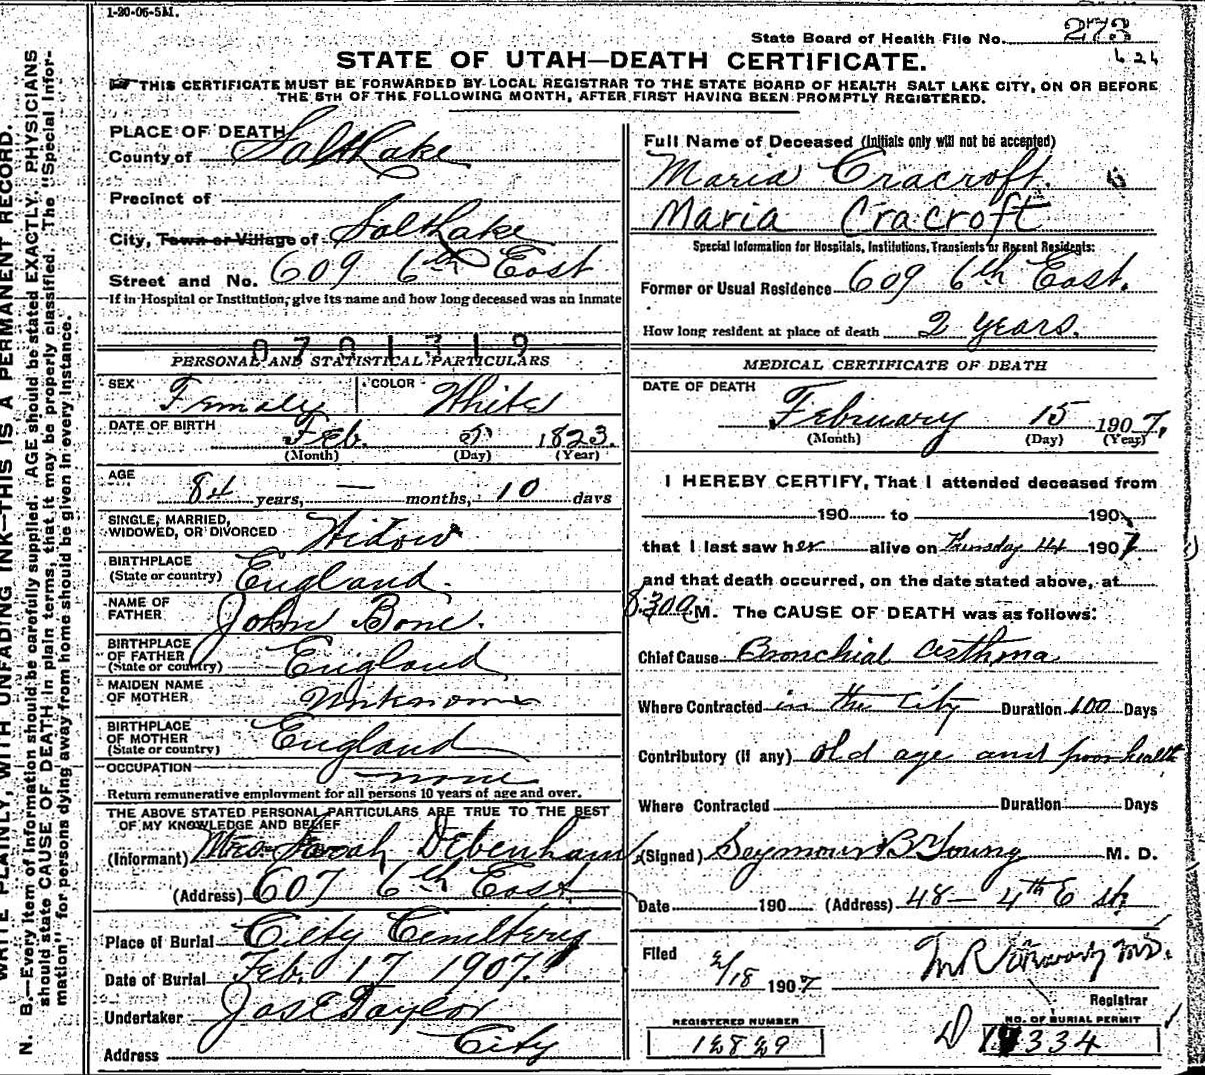 1-20-06-5M.
State Board of Health File No. 273
STATE OF UTAH—DEATH CERTIFICATE.
THIS CERTIFICATE MUST BE FORWARDED BY LOCAL REGISTRAR TO THE STATE BOARD OF HEALTH SALT LAKE CITY, ON OR BEFORE
THE 5TH OF THE FOLLOWING MONTH, AFTER FIRST HAVING BEEN PROMPTLY REGISTERED.
WRITE PLAINLY, WITH UNFADING INK—THIS IS A PERMANENT RECORD.
N. B.—Every item of information should be carefully supplied. AGE should be stated EXACTLY. PHYSICIANS
should state CAUSE OF DEATH in plain terms, that it may be properly classified. The "Special Infor-
mation" for persons dying away from home should be given in every instance.
PLACE OF DEATH
County of Salt Lake
Precinct of
City, Town or Village of Salt Lake
Street and No. 609 6th East
If in Hospital or Institution, give its name and how long deceased was an inmate
0701319
PERSONAL AND STATISTICAL PARTICULARS
SEX Female COLOR White
DATE OF BIRTH Feb. 5 1823.
(Month) (Day) (Year)
AGE
84 years, — months, 10 days
SINGLE, MARRIED,
WIDOWED, OR DIVORCED Widow
BIRTHPLACE
(State or country) England.
NAME OF
FATHER John Bone.
BIRTHPLACE
OF FATHER
(State or country) England
MAIDEN NAME
OF MOTHER Unknown
BIRTHPLACE
OF MOTHER
(State or country) England
OCCUPATION none
Return remunerative employment for all persons 10 years of age and over.
THE ABOVE STATED PERSONAL PARTICULARS ARE TRUE TO THE BEST
OF MY KNOWLEDGE AND BELIEF
(Informant) Mrs Sarah Debenham
(Address) 607 6th East
Place of Burial City Cemetery
Date of Burial Feb. 17 1907.
Undertaker Jos E Taylor
Address City
Full Name of Deceased (Initials only will not be accepted)
Maria Cracroft.
Maria Cracroft
Special Information for Hospitals, Institutions, Transients or Recent Residents:
Former or Usual Residence 609 6th East.
How long resident at place of death 2 Years.
MEDICAL CERTIFICATE OF DEATH
DATE OF DEATH
February 15 1907.
(Month) (Day) (Year)
I HEREBY CERTIFY, That I attended deceased from
190 to 190
that I last saw her alive on Thursday 14 1907
and that death occurred, on the date stated above, at
8.30 a M. The CAUSE OF DEATH was as follows:
Chief Cause Bronchial Asthma
Where Contracted in the City Duration 100 Days
Contributory (if any) old age and poor health
Where Contracted Duration Days
(Signed) Seymour B Young M. D.
Date 190 (Address) 48— 4th E St
Filed 2/18 1907
Registrar
REGISTERED NUMBER
12829
NO. OF BURIAL PERMIT
D 334